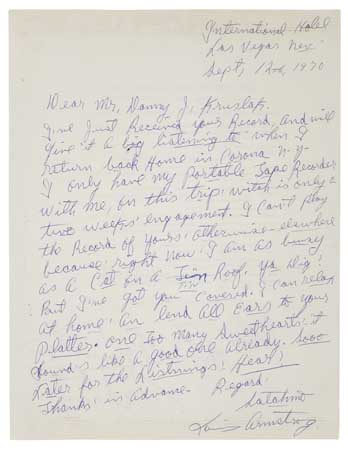 International Hotel
Las Vegas Nev.
Sept, 12th, 1970
Dear Mr, Danny J, Kruslak.
I've Just Received your Record, And will
give it a big listening to when I
return back Home in Corona N.Y.
I only have my Portable Tape Recorder
With me, on this trip. witch is only a
two weeks' engagement. I Can't play
the Record of yours, otherwise - elsewhere
because right Now I am as busy
as a Cat on a Tin Roof, ya Dig?
But I've got you Covered. I Can relax
at home. An lend All Ears to your
Platter. one Too Many Sweethearts. it
Sounds like a good one Already. Sooo
Later for the Listnings. Hear?
Thanks' in Advance. Regard.
Satchmo
Louis Armstrong